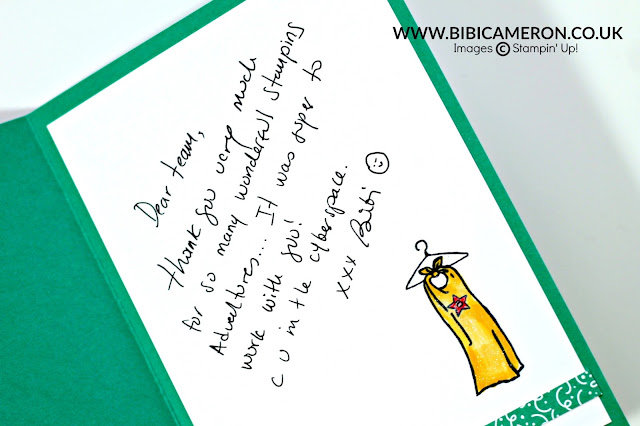 WWW.BIBICAMERON.CO.UK
Images © Stampin' Up!
Dear team,
thank you very much
for so many wonderful stamping
Adventures... It was super to
work with you!
C U in the cyberspace.
xxx Bibi ☺